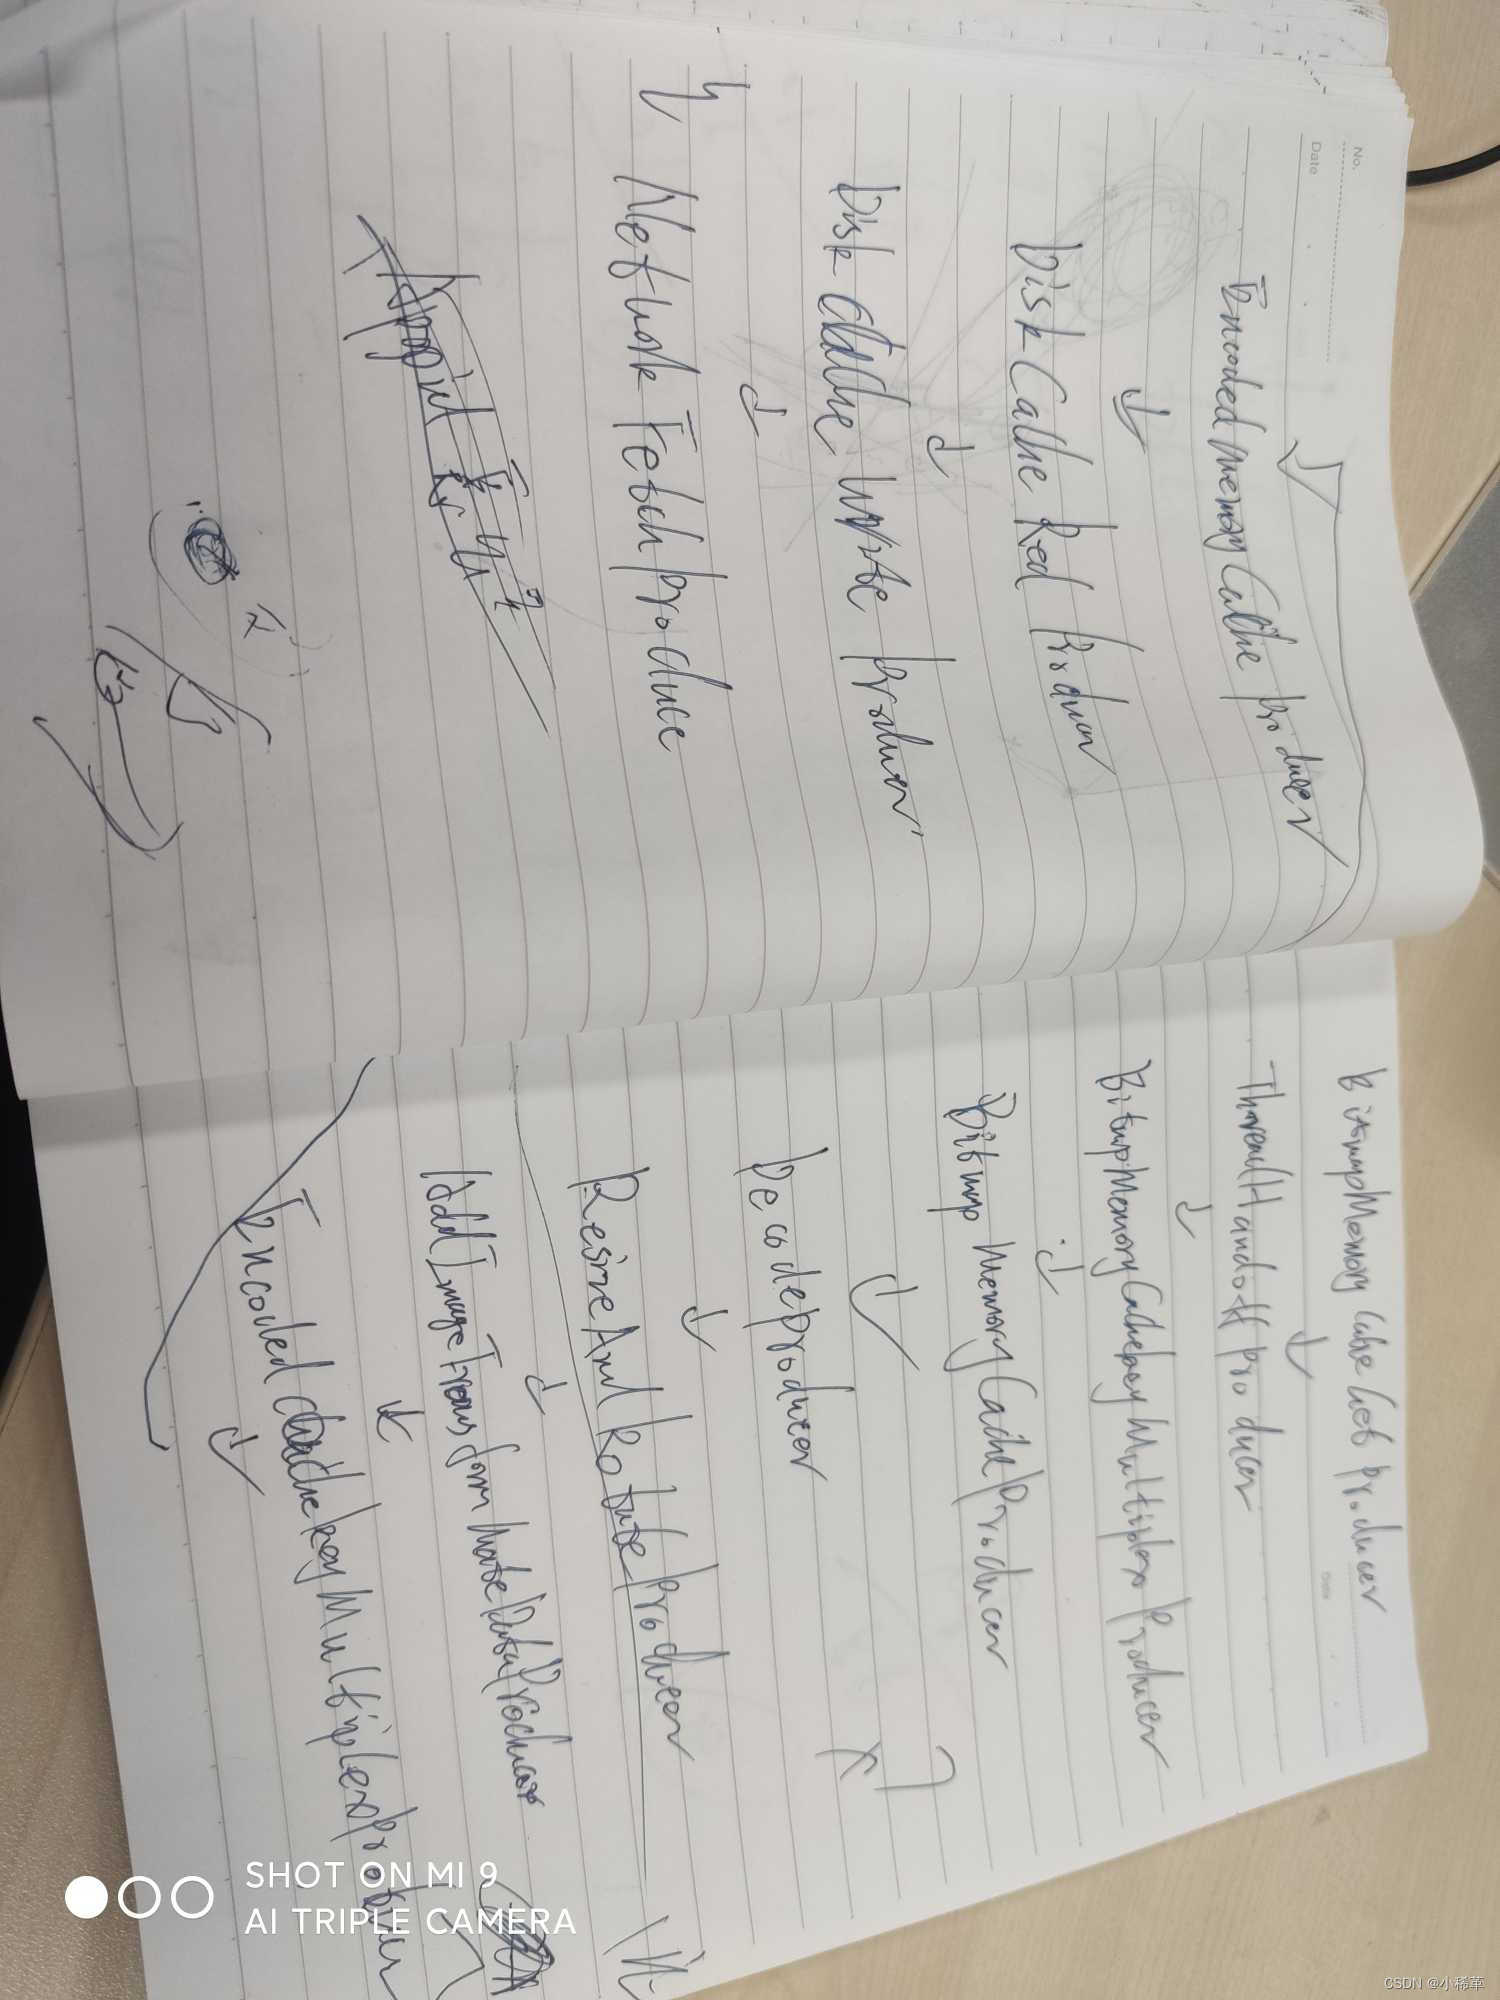 No.
Date
Encoded Memory Cache Producer
Disk Cache Read Producer
Disk Cache Write Producer
Network Fetch Produce
BitmapMemory Cache Get Producer
Date
ThreadHandoff Producer
BitmapMemoryCacheKeyMultiplex Producer
Bitmap Memory Cache Producer
DecodeProducer
ResizeAnd RotateProducer
AddImageTransformMetaDataProducer
Encoded CacheKeyMultiplexProducer
SHOT ON MI 9
AI TRIPLE CAMERA
CSDN @小稀革